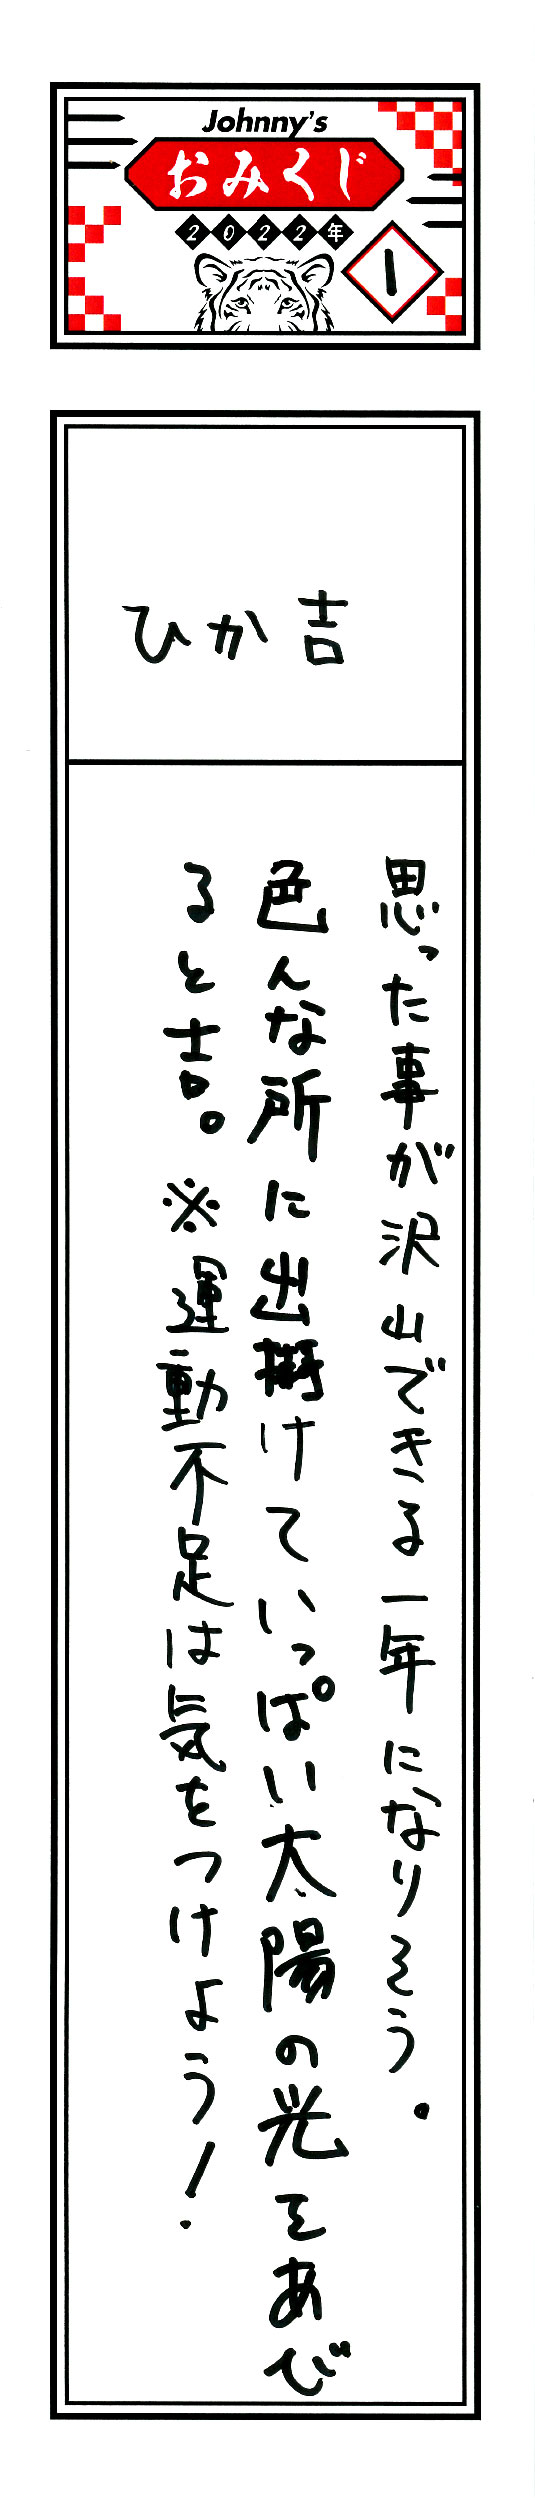 Johnny's
おみくじ
2022年
1
ひか吉
思った事が沢山できる一年になりそう。
色んな所に出掛けていっぱい太陽の光をあび
ると吉。※運動不足は気をつけよう!